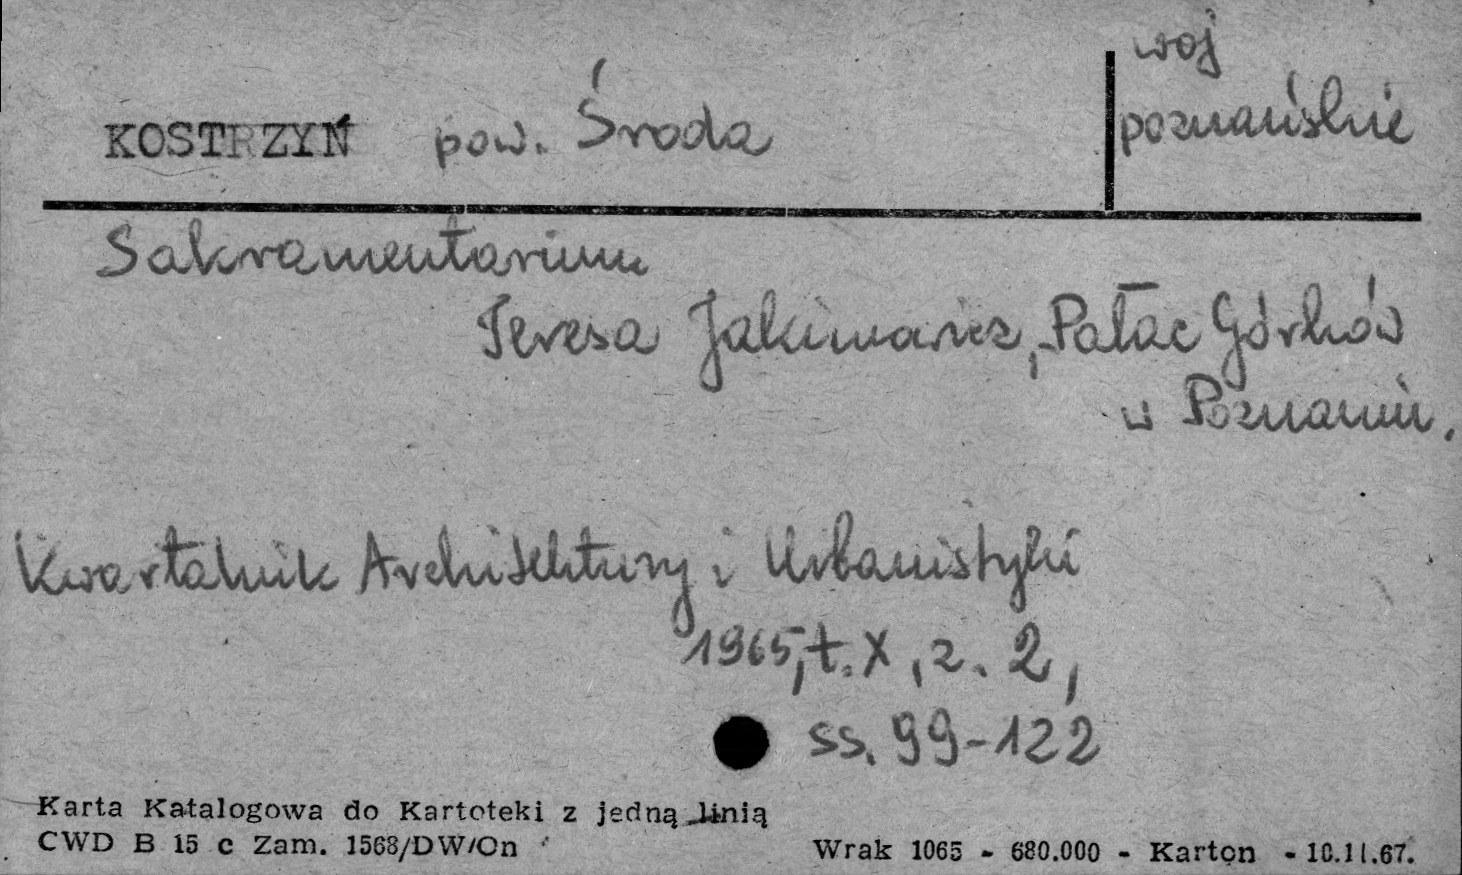 woj
KOSTRZYŃ pow. Środa poznańskie
Sakramentarium
Teresa Jakimowicz, Pałac Górków
w Poznaniu.
Kwartalnik Architektury i Urbanistyki
1965, t. X, z. 2,
ss. 99-122
Karta Katalogowa do Kartoteki z jedną linią
CWD B 15 c Zam. 1568/DW/On
Wrak 1065 - 680.000 - Karton - 10.11.67.